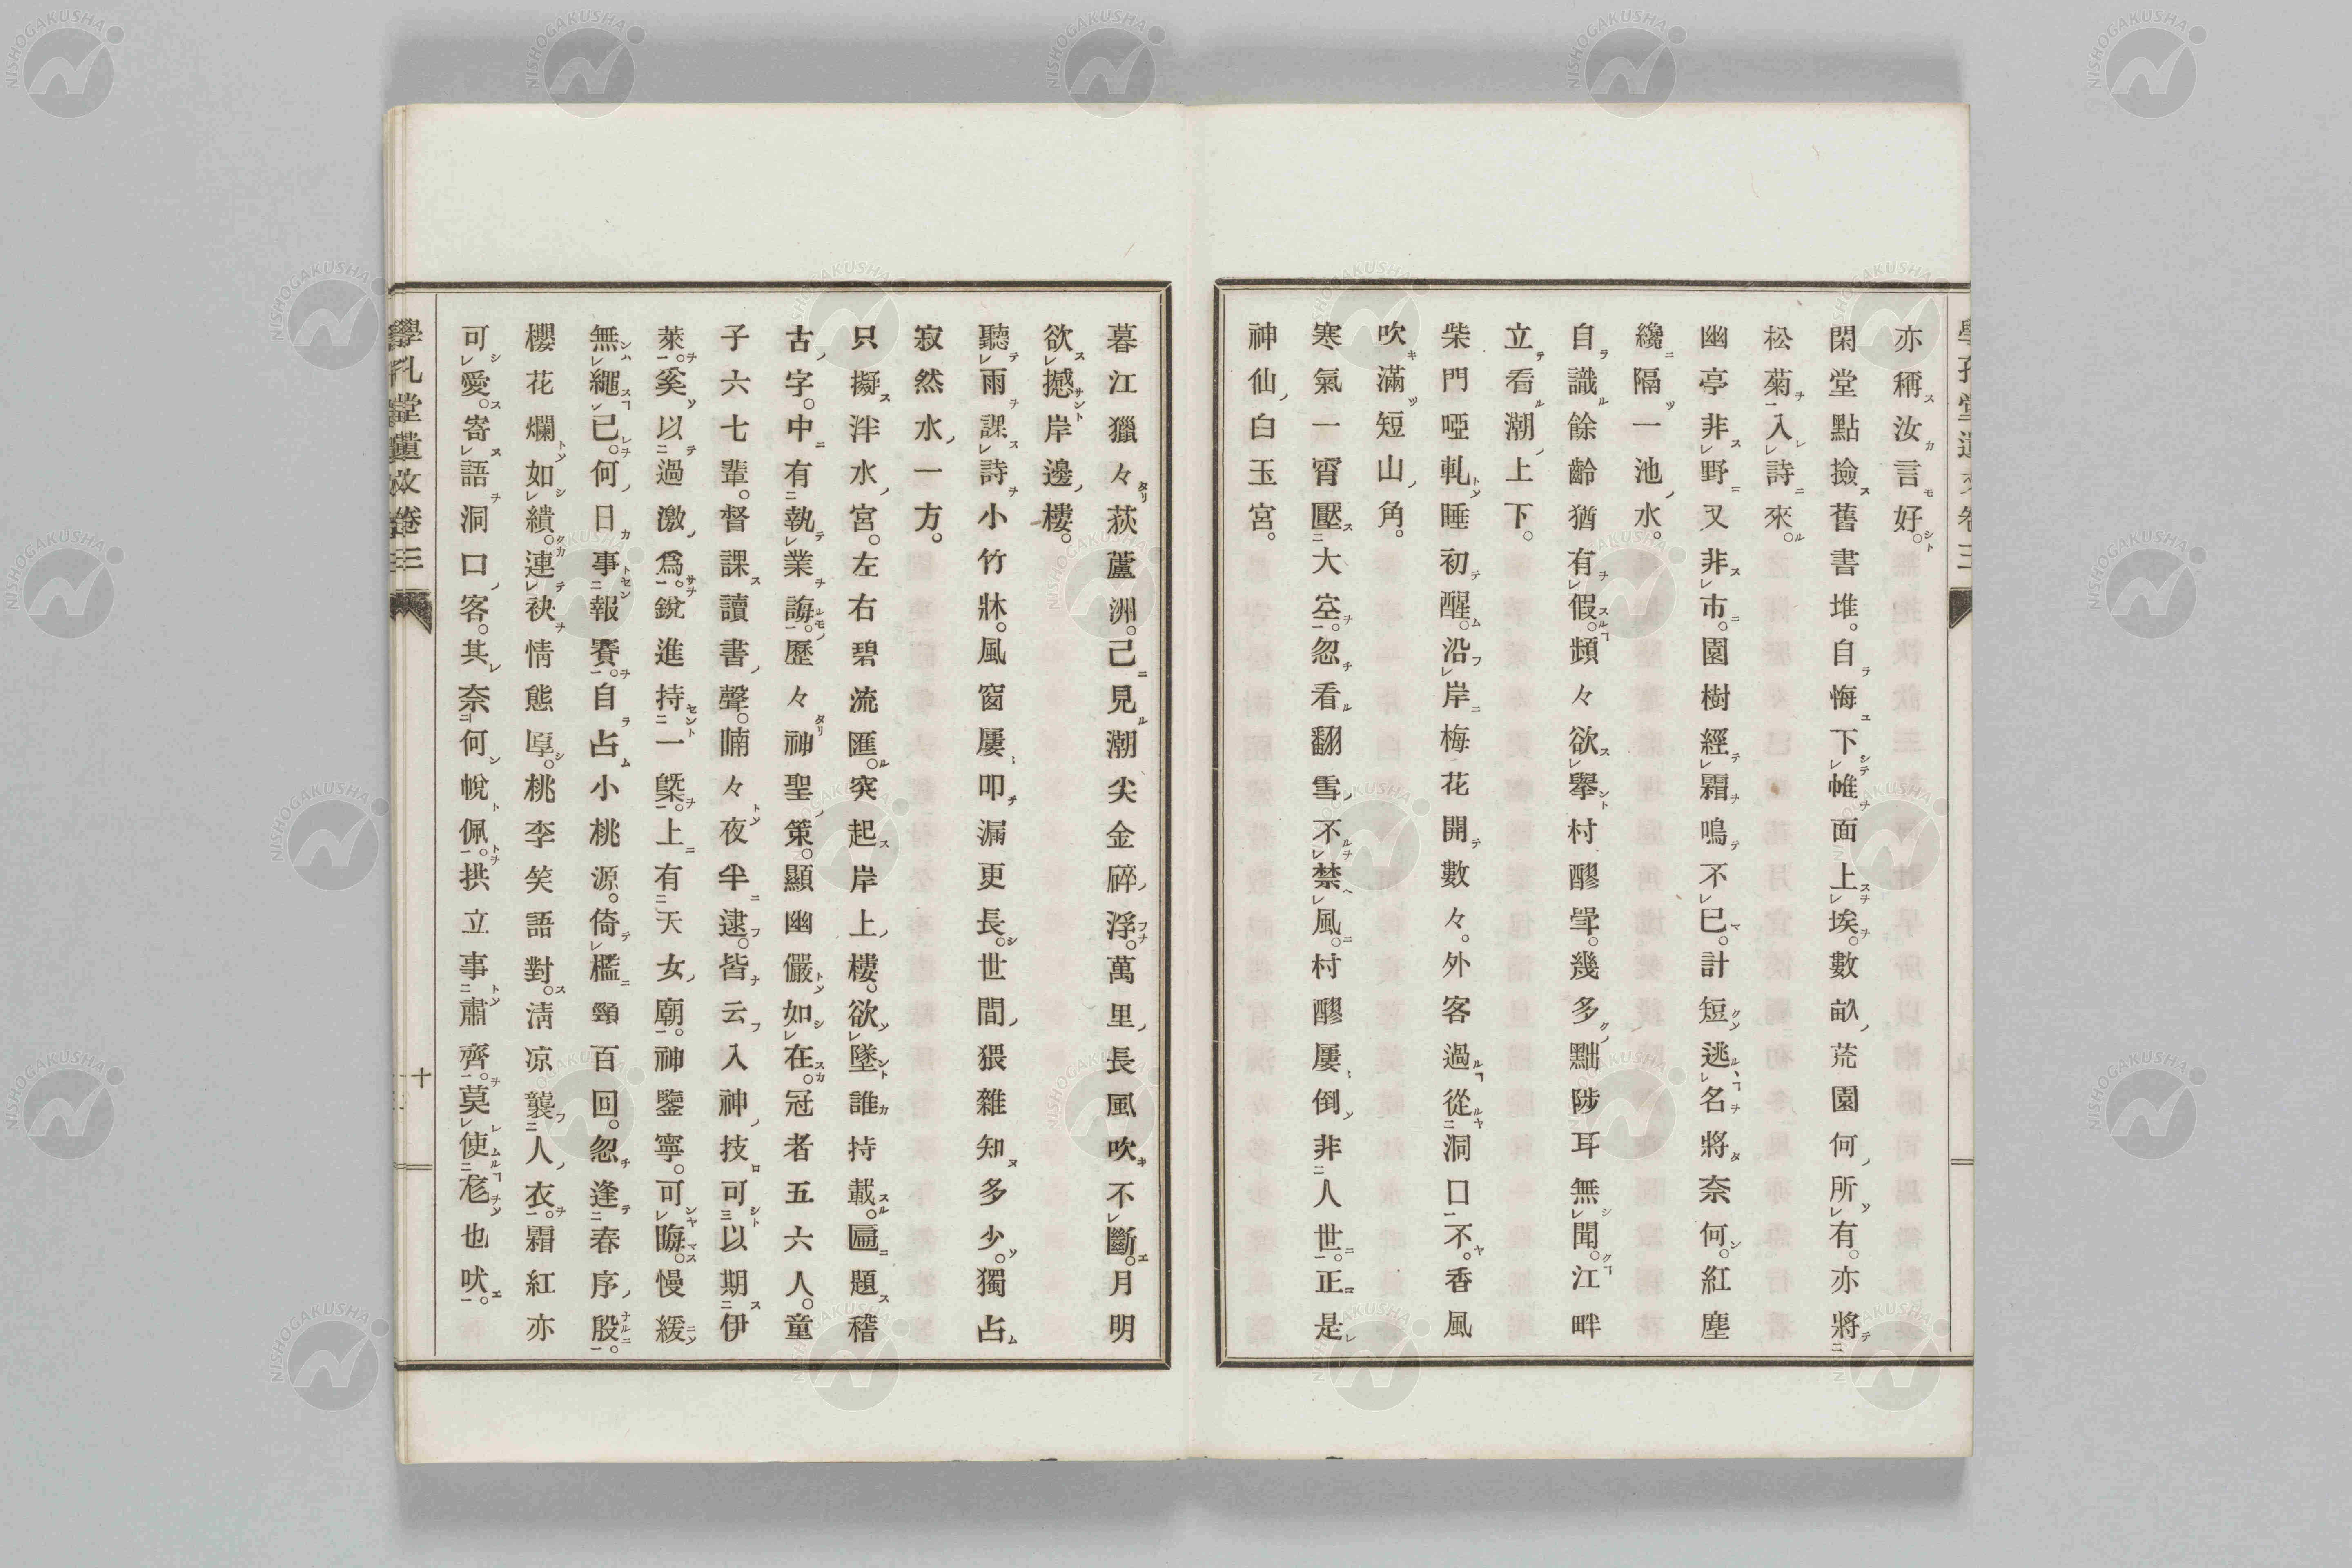 亦稱汝言好。
閑堂點撿舊書堆。自悔下帷面上埃。數畝荒園何所有。亦將
松菊入詩來。
幽亭非野又非市。園樹經霜鳴不已。計短逃名將奈何。紅塵
纔隔一池水。
自識餘齡猶有假。頻々欲擧村醪斝。幾多黜陟耳無聞。江畔
立看潮上下。
柴門啞軋睡初醒。沿岸梅花開數々。外客過從洞口不。香風
吹滿短山角。
寒氣一宵壓大空。忽看翻雪不禁風。村醪屢倒非人世。正是
神仙白玉宮。
暮江獵々荻蘆洲。已見潮尖金碎浮。萬里長風吹不斷。月明
欲撼岸邊樓。
聽雨課詩小竹牀。風窗屢叩漏更長。世間猥雜知多少。獨占
寂然水一方。
只擬泮水宮。左右碧流匯。突起岸上樓。欲墜誰持載。匾題稽
古字。中有執業誨。歷々神聖策。顯幽儼如在。冠者五六人。童
子六七輩。督課讀書聲。喃々夜半逮。皆云入神技可以期伊
萊。奚以過激爲。銳進持一槩。上有天女廟。神鑒寧可晦。慢緩
無繩已。何日事報賽。自占小桃源。倚檻頸百回。忽逢春序殷。
櫻花爛如繢。連袂情態厚。桃李笑語對。淸凉襲人衣。霜紅亦
可愛。寄語洞口客。其奈何帨佩。拱立事肅齊。莫使尨也吠。
學孔堂遺文卷三
NISHOGAKUSHA